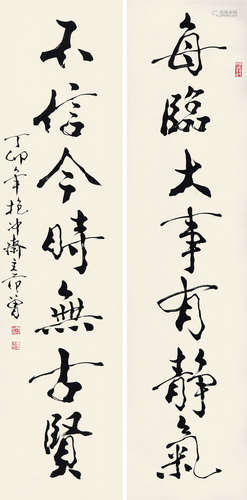 每臨大事有靜氣
不信今時無古賢
丁卯年抱冲齋主范曾